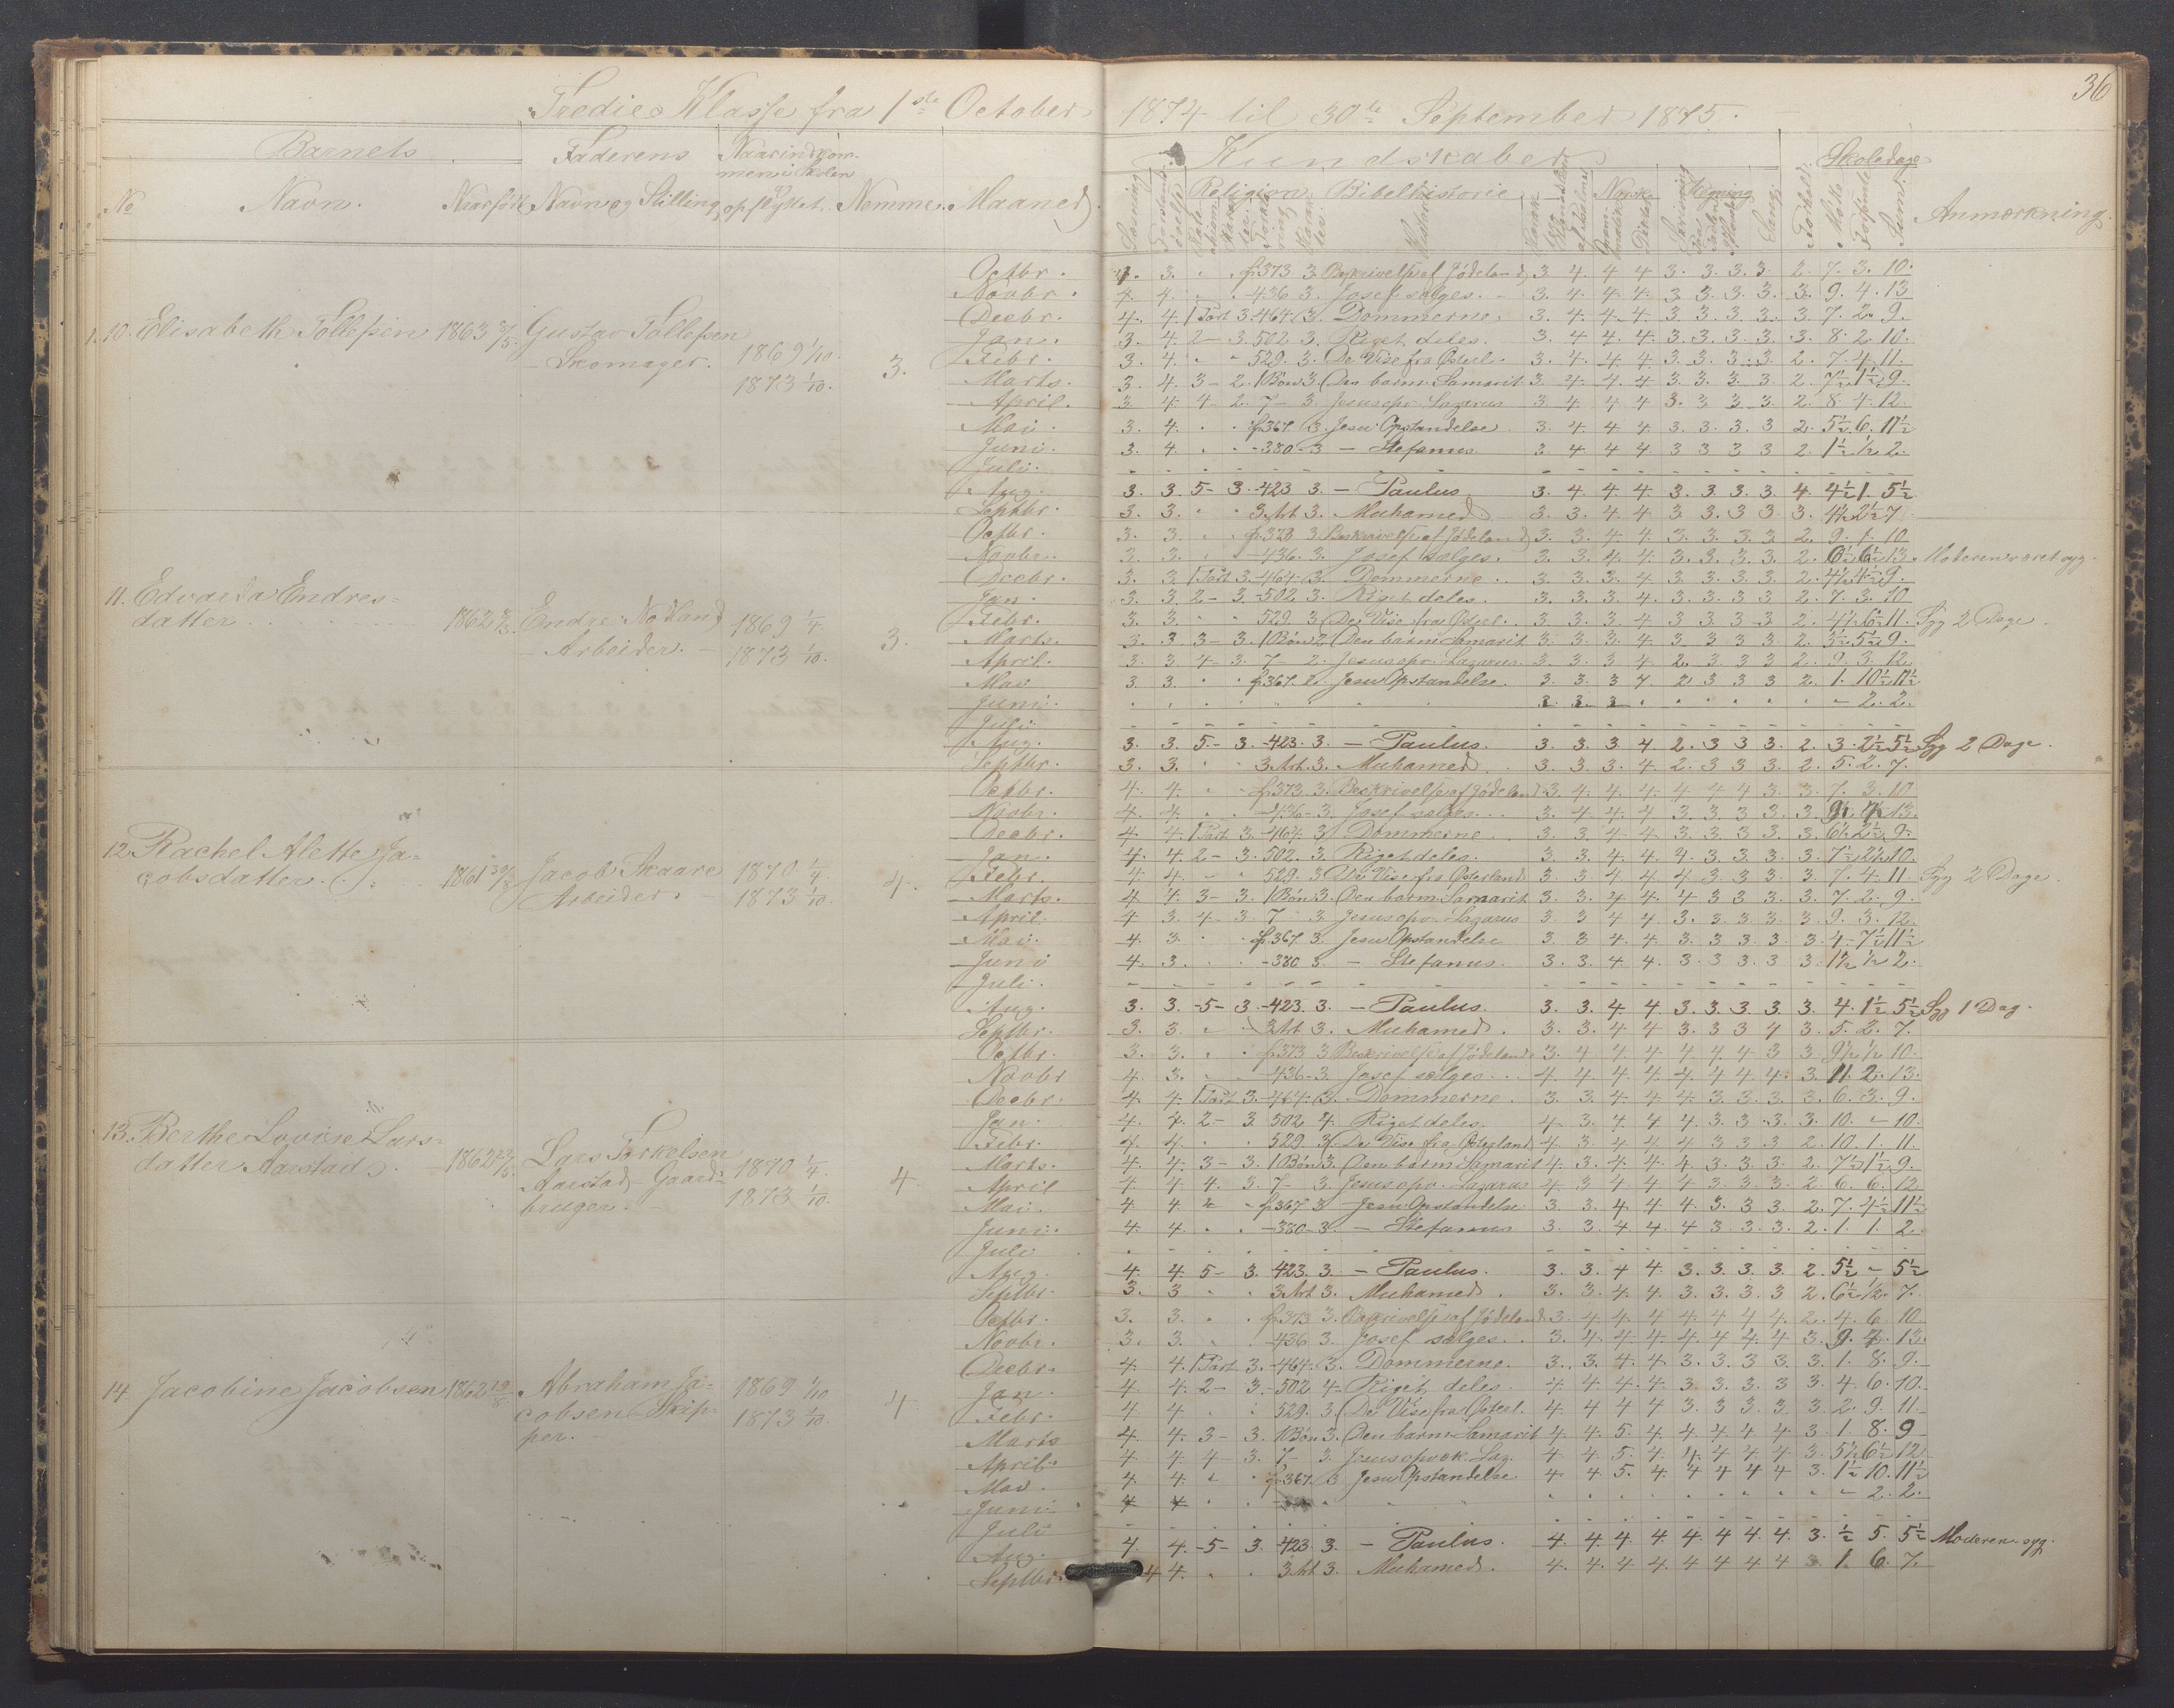 36
Tredie Klasse fra 1ste October 1874 til 30te September 1875.
Barnets Faderens Naar indkommen i Skolen Kundskaber Skoledage
No Navn. Naar født Navn og Stilling, opflyttet. Nemme. Maaned. Religion Bibelhistorie Norsk Regning Sang Forhold Mødte Forsømte Sum Anmærkning.
10. Elisabeth Tollefsen 1863 Gustav Tollefsen
Skomager. 1869 1/10
1873 1/10. 3.
Octbr. 4. 3. " " p373 3. Beskrivelse af Jødeland 3 4. 4 4 3. 3. 3. 3. 2. 7. 3. 10.
Novbr. 4. 4. " " -436 3. Josef sælges. 3. 4. 4. 4. 3. 3. 3. 3. 3. 9. 4. 13
Decbr. 4. 4. 1 Part 3. -464. 3. Dommerne. 3. 4. 4. 4. 3. 3. 3. 3. 3. 7. 2. 9.
Jan. 3. 4. 2 - 3. 502 3. Riget deles. 3. 4 4. 4. 3. 3. 3. 3. 3. 8. 2 10.
Febr. 3. 4. " " 529. 3. De Vise fra Østerl. 3. 4. 4. 4. 3. 3. 3. 3. 2. 7. 4. 11.
Marts. 3. 4. 3 - 2. 1 Bøn 3. Den barm. Samarit 3 4. 4. 4 3. 3. 3. 3. 2. 7½ 1½ 9.
April. 3. 4. 4 - 2. 7 - 3. Jesus opv. Lazarus 3 4. 4 4 3. 3 3 3. 2. 8. 4. 12.
Mai. 3. 4. " " p367. 3. Jesu Opstandelse. 3. 4. 4 4. 3. 3. 3. 3 2. 5½. 6. 11½
Juni. 3. 4. " " -380 - 3 — Stefanus 3 4 4 4 3 3 3 3 2. 1½ ½ 2.
Juli.
Aug. 3. 3. 5 - 3. -423 3. — Paulus. 3. 4. 4. 4. 3. 3. 3. 3. 4. 4½ 1. 5½
Septbr. 3. 3. " " 3. Art 3. Muhamed. 3. 3. 4. 4 3. 3. 3. 3. 3. 4½ 2½ 7
11. Edvarda Endres-
datter 1862 Endre Nodland
Arbeider. 1869 1/4.
1873 1/10. 3.
Octbr. 3. 3. " " p373 3. Beskrivelse af Jødeland 3. 3. 4. 4. 3. 3. 3. 3 2. 9. 1. 10
Novbr. 3. 3. " " -436. 3. Josef sælges. 3. 3. 4. 4. 3. 3. 3. 3. 2. 6½ 6½ 13. Moderen været syg.
Decbr. 3. 3. 1 Part 3. -464. 3. Dommerne. 3. 3. 3. 4 3. 3. 3. 3. 2. 4½ 4½ 9.
Jan. 3. 3. 2 - 3. -502 3. Riget deles. 3. 3. 3. 4. 3. 3. 3. 3 2. 7. 3. 10
Febr. 3. 3. " " 529. 3. De Vise fra Østerl. 3. 3. 3. 4 3. 3. 3. 3 2. 4½ 6½ 11. Syg 2 Dage.
Marts. 3. 3. 3 - 3. 1 Bøn 2. Den barm. Samarit 3. 3. 3. 4. 3 3 3 3. 2. 3½ 5½ 9.
April. 3. 3. 4 - 3. 7 - 2. Jesus opv. Lazarus. 3. 3. 3 4. 2. 3. 3 3 2. 9. 3. 12
Mai 3. 3. " " p367. 2. Jesu Opstandelse. 3. 3. 3 4. 2 3 3 3 2. 1. 10½ 11½
Juni. - 2. 2.
Juli
Aug. 3. 3. 5. - 3. -423. 3. — Paulus. 3. 3. 3 4. 2. 3 3 3. 2. 3. 2½ 5½ Syg 2 Dage.
Septbr. 3. 3. " " 3. Art. 3. Muhamed. 3. 3. 3. 4. 2. 3 3 3. 2. 5. 2. 7.
12. Rachel Alette Ja-
cobsdatter. 1861 Jacob Skaare
Arbeider. 1870 1/4
1873 1/10. 4.
Octbr. 4. 4. " " p373. 3. Beskrivelse af Jødeland 3. 4. 4. 4. 4 4 4 3 3. 7. 3. 10
Novbr. 4. 4. " " -436 - 3. Josef sælges. 3. 4 4 4 3. 3 3. 3. 3. 13.
Decbr. 4. 4. 1 Part 3. -464. 3. Dommerne. 3. 3. 4. 4 3. 3. 3. 3. 3. 6½ 2½ 9.
Jan. 4. 4. 2 - 3. 502. 3. Riget deles. 3. 3. 4. 4. 4. 3. 3. 3. 3. 7½ 2½ 10.
Febr. 4. 4. " " 529. 3. De Vise fra Østerland 3 3. 4. 4. 4 3. 3. 3. 3. 7. 4. 11 Syg 2 Dage.
Marts. 4. 4. 3 - 3. 1 Bøn 3. Den barm. Samarit 3. 3. 4. 4. 4 3 3 3. 3. 7. 2. 9.
April. 4. 3. 4 - 3. 7 - 3. Jesus opv. Lazarus 3. 3 4 4 3. 3. 3. 3. 3 9. 3. 12.
Mai. 4. 3. " " p367. 3. Jesu Opstandelse 3. 3 4. 4. 3. 3 3. 3. 3. 4. 7½ 11½
Juni 4. 3. " " -380 3. — Stefanus. 3. 3. 4. 4. 3. 3 3. 3 3. 1½ ½ 2.
Juli.
Aug. 3. 3. -5 - 3. -423. 3. — Paulus. 3. 3. 4. 4 3. 3. 3. 3. 3. 4. 1½ 5½ Syg 1 Dag.
Septbr. 3. 3. " " 3 Art 3. Muhamed. 3. 3. 4. 4 3. 3. 3 4 3. 5. 2. 7.
13. Berthe Lovise Lars-
datter Aarstad. 1862 Lars Torkelsen
Aarstad - Gaard-
bruger. 1870 1/4.
1873 1/10. 4.
Octbr. 3. 3. " " p373 3 Beskrivelse af Jødeland 3. 4 4. 4. 4. 4. 4 3 3. 9½ ½ 10.
Novbr 4. 3. " " -436 - 3. Josef sælges. 4. 4. 4. 4. 4. 4. 4. 4. 3. 11. 2. 13.
Decbr. 4. 4. 1 Part 3. -464. 3. Dommerne. 3. 3. 4. 4. 4 3. 3. 3. 3. 6. 3. 9.
Jan. 4. 4. 2 - 3 502 4. Riget deles. 4. 3. 4. 4. 4. 3. 3. 3. 3. 10. - 10.
Febr. 4. 4. " " 529. 3. De Vise fra Østerland 4. 3. 4. 4. 4 3 3. 3 2. 10. 1. 11.
Marts. 4. 4. 3 - 3. 1 Bøn 3. Den barm. Samarit 4. 3. 4. 4. 4. 3. 3. 3. 2. 7½ 1½ 9.
April 4. 4. 4. 3. 7 - 3. Jesus opv. Lazarus 4. 3 4 4 4 3. 3. 3. 2. 6. 6. 12
Mai. 4. 4. " " p367 3 Jesu Opstandelse 3. 3. 4. 4 4. 3. 3 3. 2. 7. 4½ 11½
Juni. 4. 4. " " -380 - 3. — Stefanus 3. 3. 4. 4. 4 3. 3. 3. 2. 1. 1. 2.
Juli
Aug. 4. 4. 5 - 3. 423. 3. — Paulus. 3. 3. 4 4. 3. 3. 3. 3. 2. 5½ - 5½
Septbr. 3. 3 " " 3. Art 3. Muhamed. 3. 3. 4. 4. 3. 3. 3. 3 2. 6½ ½. 7.
14. Jacobine Jacobsen 1862 Abraham Ja-
cobsen - Skip-
per. 1869 1/10
1873 1/10. 4.
Octbr. 3. 3. " " p373 3. Beskrivelse af Jødeland 3. 4 4 4 4 4 4 4. 2. 4. 6. 10
Novbr. 3. 3. " -436 3. Josef sælges. 3. 4. 4 4 4. 4. 4. 4 3. 9. 4. 13.
Decbr. 4. 4. 1 Part 3. -464. 3. Dommerne. 3. 3. 4. 4. 3. 3. 3 3. 3. 1. 8. 9.
Jan. 4. 4. 2 - 3. -502 4. Riget deles. 4. 4. 4. 4. 3. 3. 3. 3 3. 4. 6. 10.
Febr. 4. 4. " " 529. 3. De Vise fra Østerl. 4. 4 4 4 3. 3. 3. 3. 3. 2. 9. 11
Marts 4. 4. 3 - 3. 1 Bøn 3. Den barm. Samarit 4. 4. 5. 4. 4. 4. 4. 4. 3. 1. 8. 9
April. 4. 4. 4 - 3. 7 - 3. Jesus opvek. Laz. 4. 4. 5. 4. 4. 4. 4. 4. 3. 5½ 6½ 12
Mai. 4. 4. " " p367. 3. Jesu Opstandelse 4. 4. 5. 4. 4 4 4 4 3. 1½ 10. 11½
Juni 4 4 - 2. 2.
Juli
Aug. 4. 4. -5 - 3. 423. 3. — Paulus. 4. 4. 4. 4. 4. 4 4. 4. 3. ½ 5. 5½ Moderen syg.
Septbr. 4 4. " " 3 Art 3. Muhamed. 4. 4. 4 4. 4 4 4 4 3. 1. 6. 7.